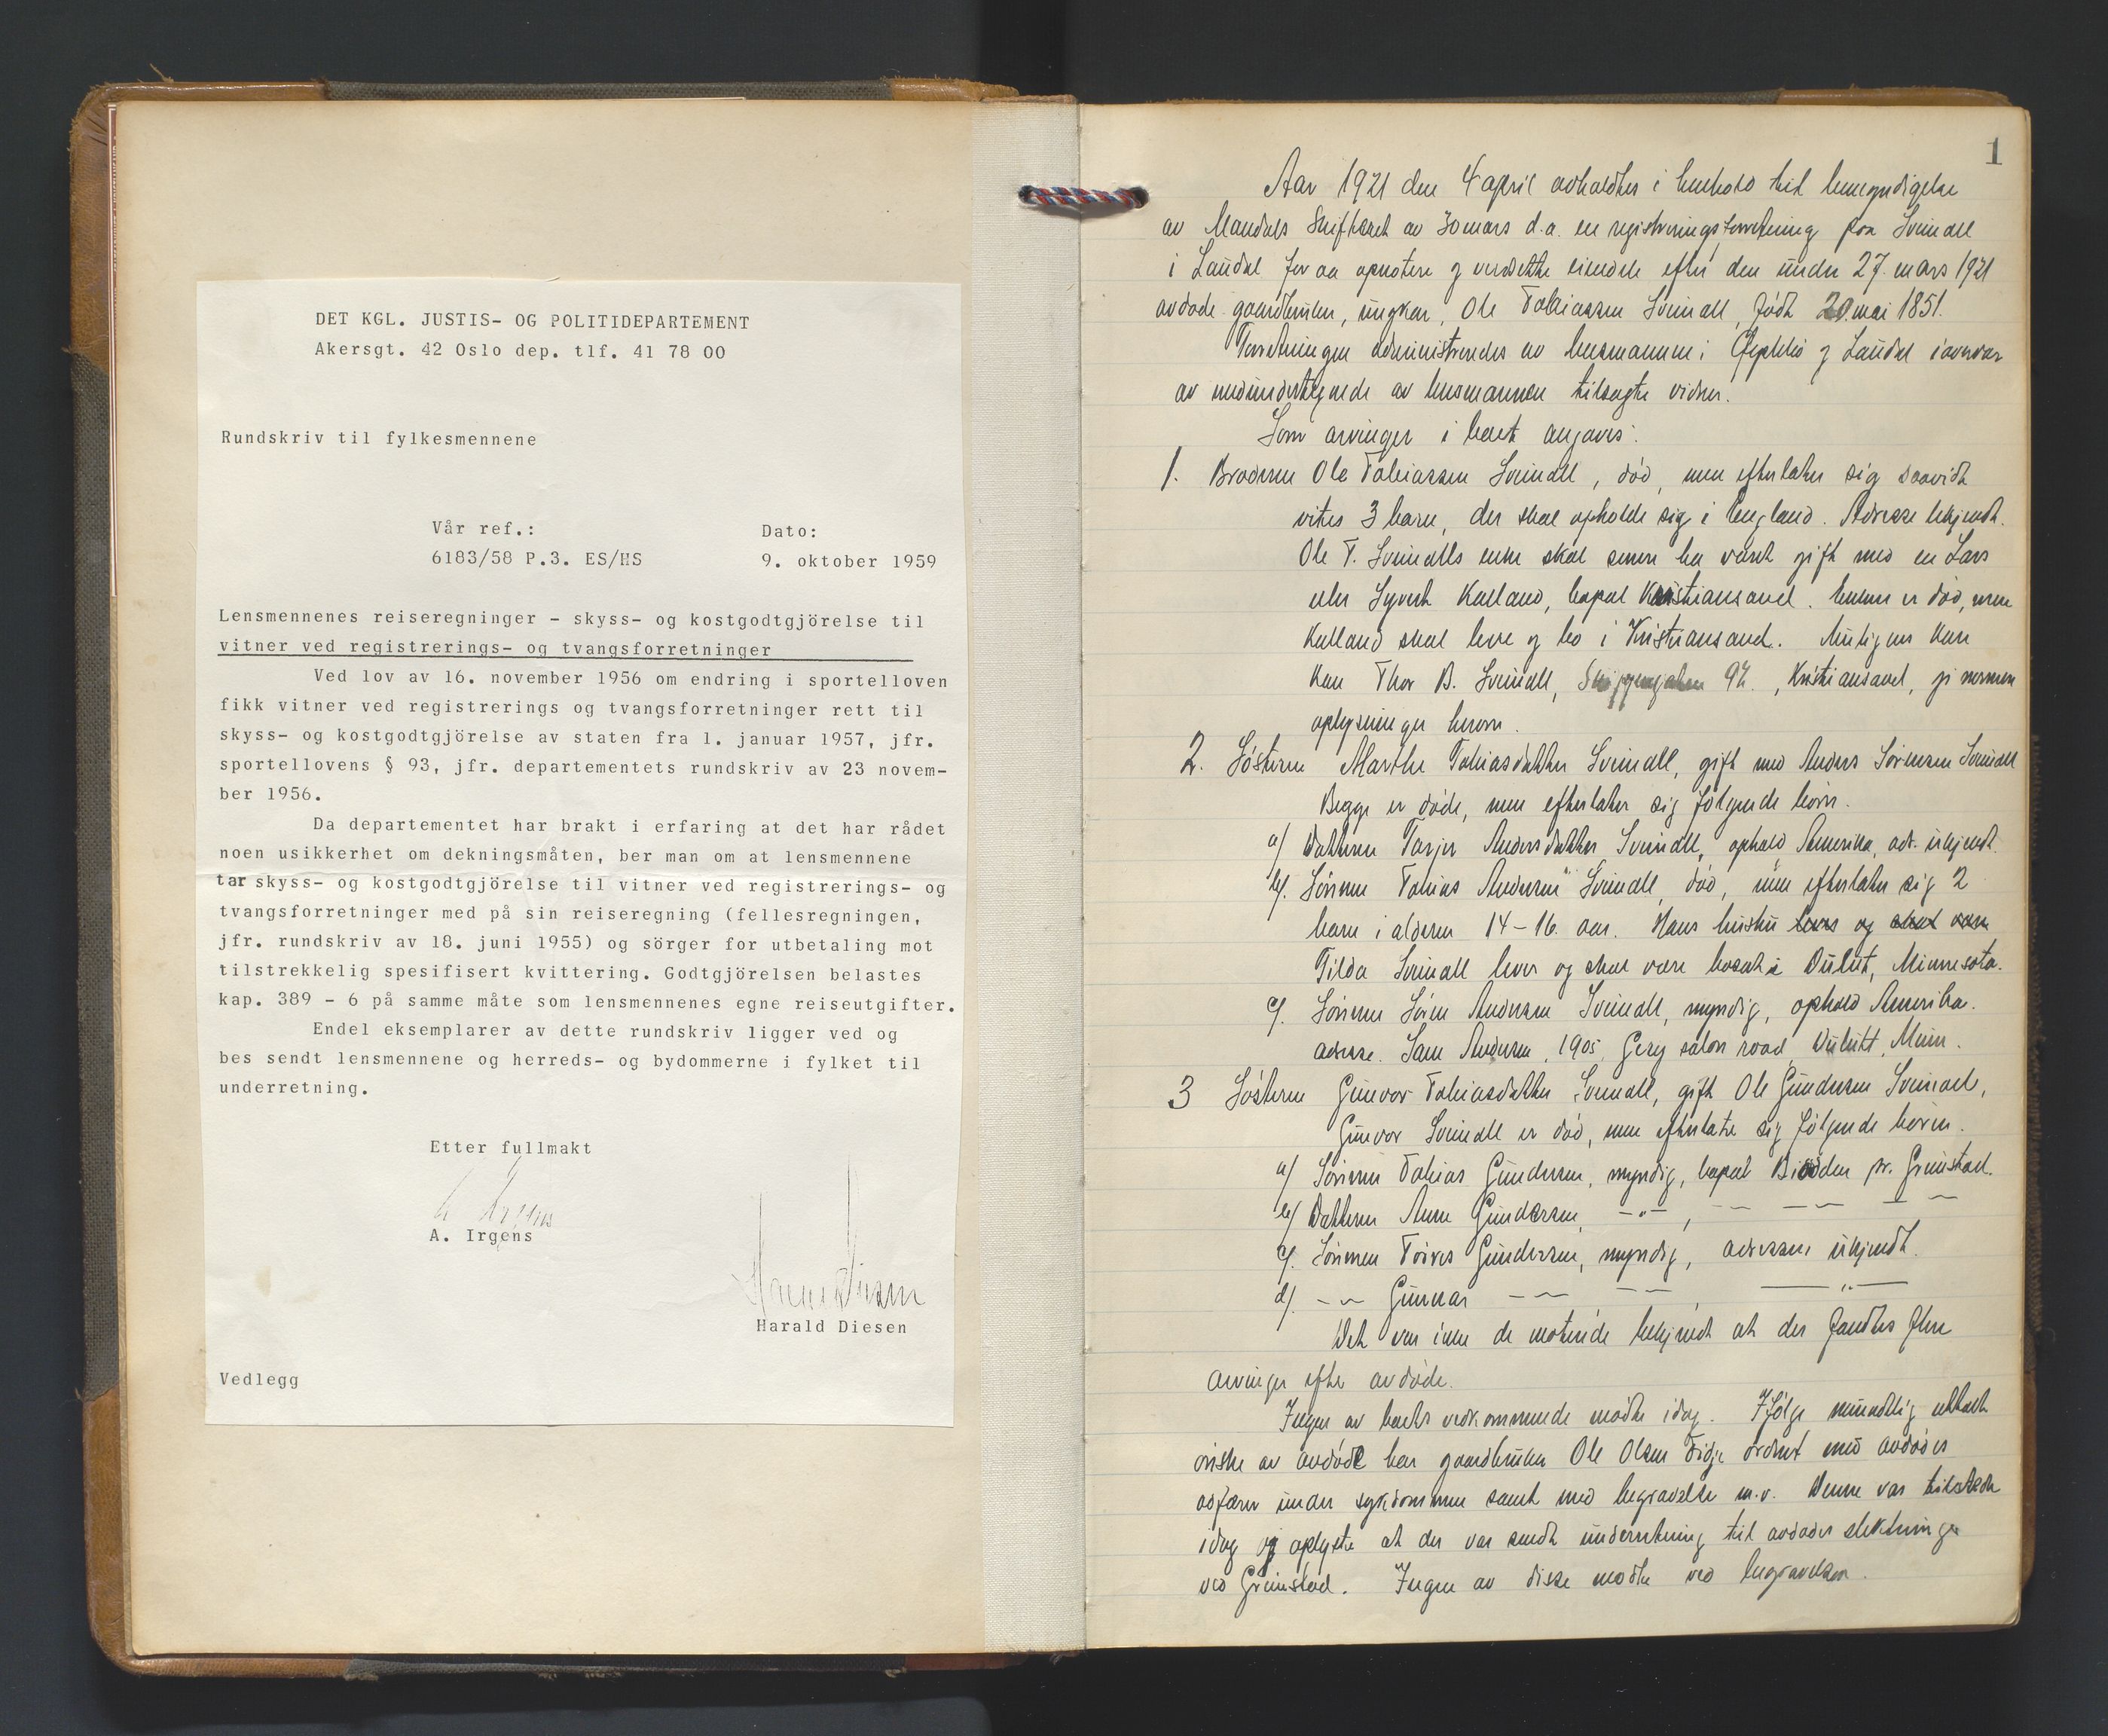 DET KGL. JUSTIS- OG POLITIDEPARTEMENT
Akersgt. 42 Oslo dep. tlf. 41 78 00
Rundskriv til fylkesmennene
Vår ref.:
6183/58 P.3. ES/HS
Dato:
9. oktober 1959
Lensmennenes reiseregninger - skyss- og kostgodtgjörelse til
vitner ved registrerings- og tvangsforretninger
Ved lov av 16. november 1956 om endring i sportelloven
fikk vitner ved registrerings og tvangsforretninger rett til
skyss- og kostgodtgjörelse av staten fra 1. januar 1957, jfr.
sportellovens § 93, jfr. departementets rundskriv av 23 novem-
ber 1956.
Da departementet har brakt i erfaring at det har rådet
noen usikkerhet om dekningsmåten, ber man om at lensmennene
tar skyss- og kostgodtgjörelse til vitner ved registrerings- og
tvangsforretninger med på sin reiseregning (fellesregningen,
jfr. rundskriv av 18. juni 1955) og sörger for utbetaling mot
tilstrekkelig spesifisert kvittering. Godtgjörelsen belastes
kap. 389 - 6 på samme måte som lensmennenes egne reiseutgifter.
Endel eksemplarer av dette rundskriv ligger ved og
bes sendt lensmennene og herreds- og bydommerne i fylket til
underretning.
Etter fullmakt
A. Irgens
A. Irgens
Harald Diesen
Harald Diesen
Vedlegg
1
Aar 1921 den 4 april avholdtes i henhold til bemyndigelse
av Mandals Skifteret av 30 mars d.a. en registreringsforretning paa Sveindall
i Laudal for aa opnotere og verdsette eiendele efter den under 27. mars 1921
avdøde gaardbruker, ungkar, Ole Tobiassen Sveindall, født 20. mai 1851.
Forretningen administreredes av lensmannen i Øyslebø og Laudal i overvær
av nedundertegnede av lensmannen tilsagte vidner.
Som arvinger i boet angaves:
1. Broderen Ole Tobiassen Sveindall, død, men efterlater sig saavidt
vites 3 barn, der skal opholde sig i England. Adresse ukjendt.
Ole T. Sveindalls enke skal senere ha været gift med en Lars
eller Syvert Kalland, bopæl Kristiansand. Enken er død, men
Kalland skal leve og bo i Kristiansand. Muligens kan
Thor B. Sveindall, Skippergaten 92., Kristiansand, gi nærmere
oplysninger herom.
2. Søsteren Marthe Tobiasdatter Sveindall, gift med Anders Sørensen Sveindall
Begge er døde, men efterlater sig følgende børn.
a/ Datteren Tarjer Andersdatter Sveindall, ophold Amerika, adr. ukjendt.
b/. Sønnen Tobias Andersen Sveindall, død, men efterlater sig 2
barn i alderen 14-16. aar. Hans hustru lever og skal være
Tilda Sveindall lever og skal være bosat i Dulut, Minnesota.
c/. Sønnen Søren Andersen Sveindall, myndig, ophold Amerika.
adresse. Sam Andersen, 1905, road, Dulutt, Minn.
3 Søsteren Gunvor Tobiasdatter Sveindall, gift Ole Gundersen Sveindall,
Gunvor Sveindall er død, men efterlater sig følgende børn.
a/ Sønnen Tobias Gundersen, myndig, bopæl Biodden pr. Grimstad.
b/ Datteren Anne Gundersen, -"-, - - -
c/. Sønnen Gundersen, myndig, adressen ukjendt.
d/. - Gunnar - - , -"-
Det var ikke de møtende bekjendt at der fandtes flere
arvinger efter avdøde.
Ingen av boets vedkommende møtte idag. Ifølge mundtlig uttalt
ønske av avdøde har gaardbruker Ole Olsen ordnet med avdødes
affærer under sykdommen samt med begravelse m.v. Denne var tilstede
idag og oplyste at der var sendt underretning til avdødes slektninger
ved Grimstad. Ingen av disse møtte ved begravelsen.